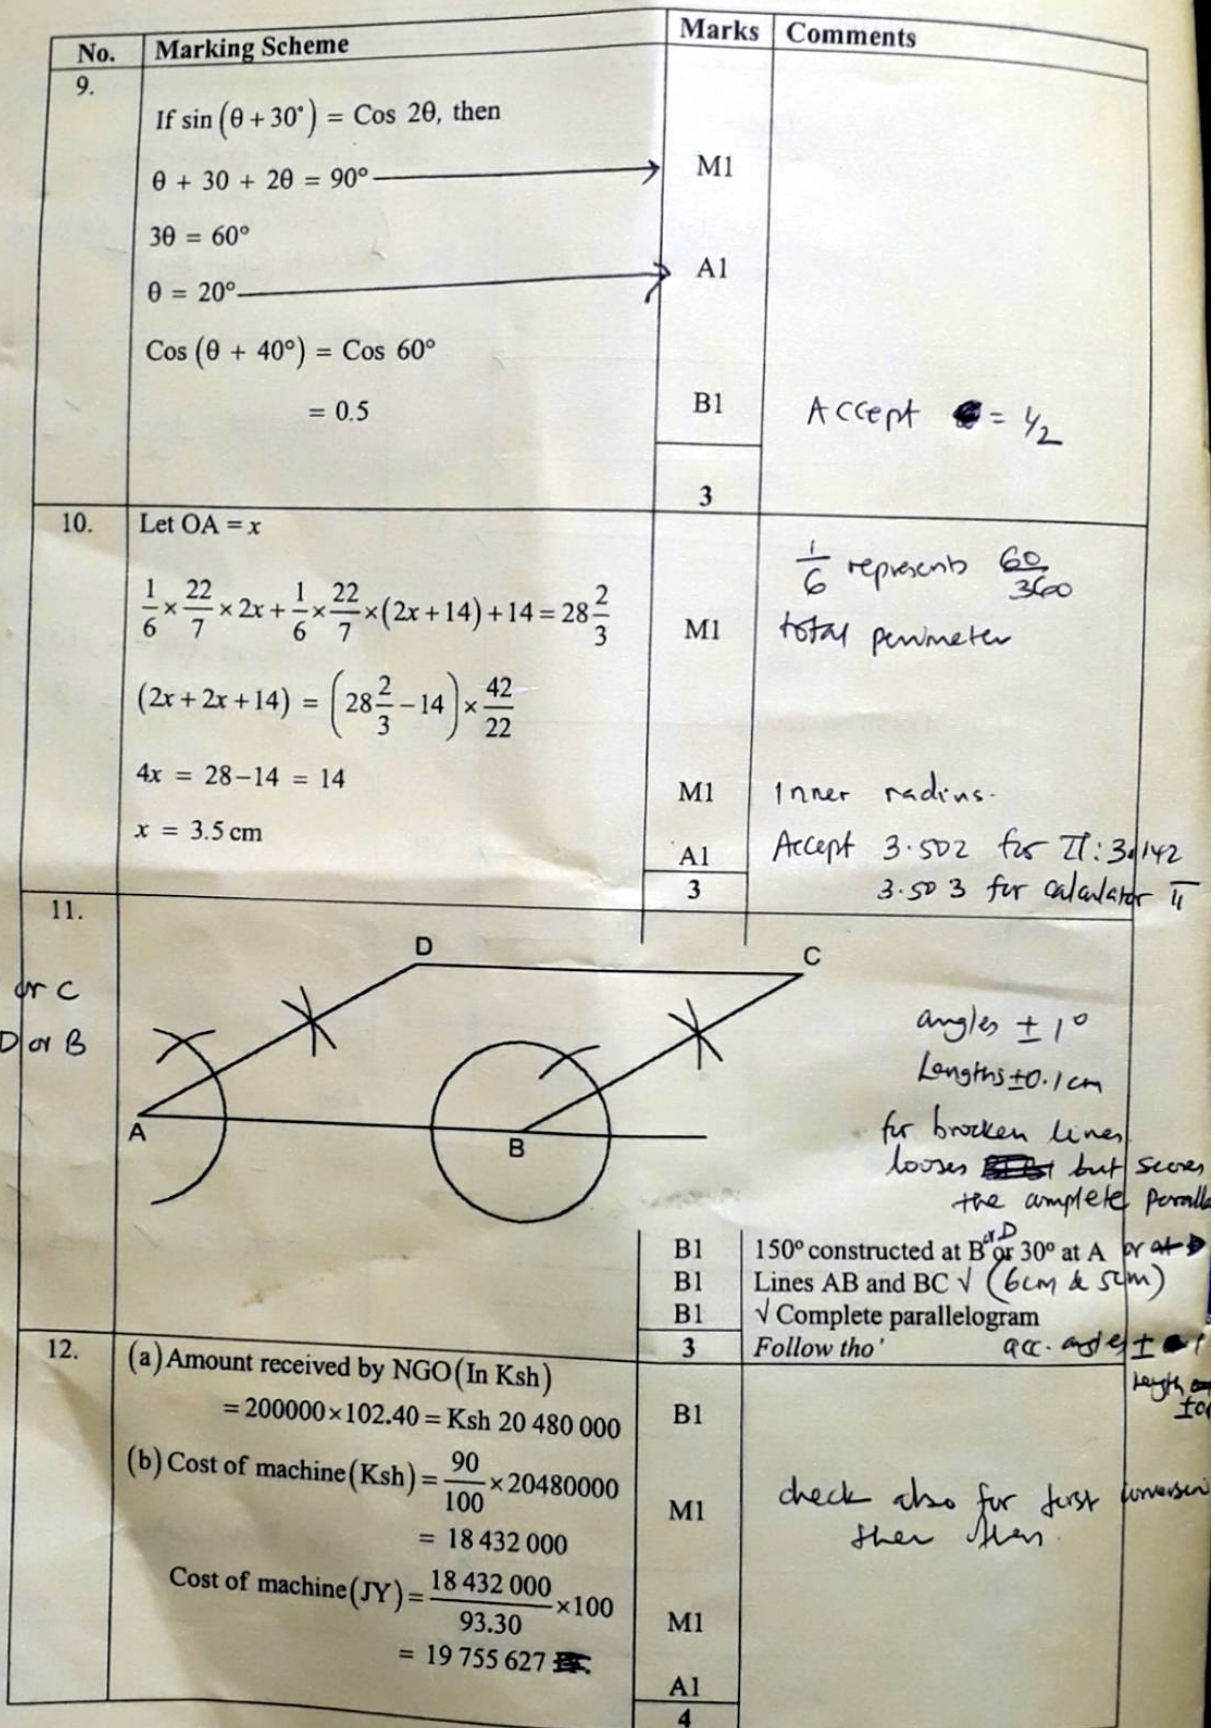 No. Marking Scheme Marks Comments
9.
If sin (θ + 30°) = Cos 2θ, then
θ + 30 + 2θ = 90° M1
3θ = 60°
θ = 20° A1
Cos (θ + 40°) = Cos 60°
= 0.5 B1 Accept = 1/2
3
10. Let OA = x
1/6 represents 60/360
1/6 × 22/7 × 2x + 1/6 × 22/7 × (2x + 14) + 14 = 28 2/3 M1 total perimeter
(2x + 2x + 14) = (28 2/3 − 14) × 42/22
4x = 28 − 14 = 14 M1 Inner radius.
x = 3.5 cm A1 Accept 3.502 for π: 3.142
3 3.503 for calculator π
11.
D C
or C
D or B
A B
angles ± 1°
Lengths ±0.1cm
for brocken lines
looses but scores
the complete
B1 150° constructed at B or D or 30° at A or at D
B1 Lines AB and BC √ (6cm & 5cm)
B1 √ Complete parallelogram
3 Follow tho' acc. angles ±
length
12. (a) Amount received by NGO (In Ksh)
= 200000 × 102.40 = Ksh 20 480 000 B1
(b) Cost of machine (Ksh) = 90/100 × 20480000 M1 check also for first
= 18 432 000
Cost of machine (JY) = 18 432 000/93.30 × 100 M1
= 19 755 627
A1
4